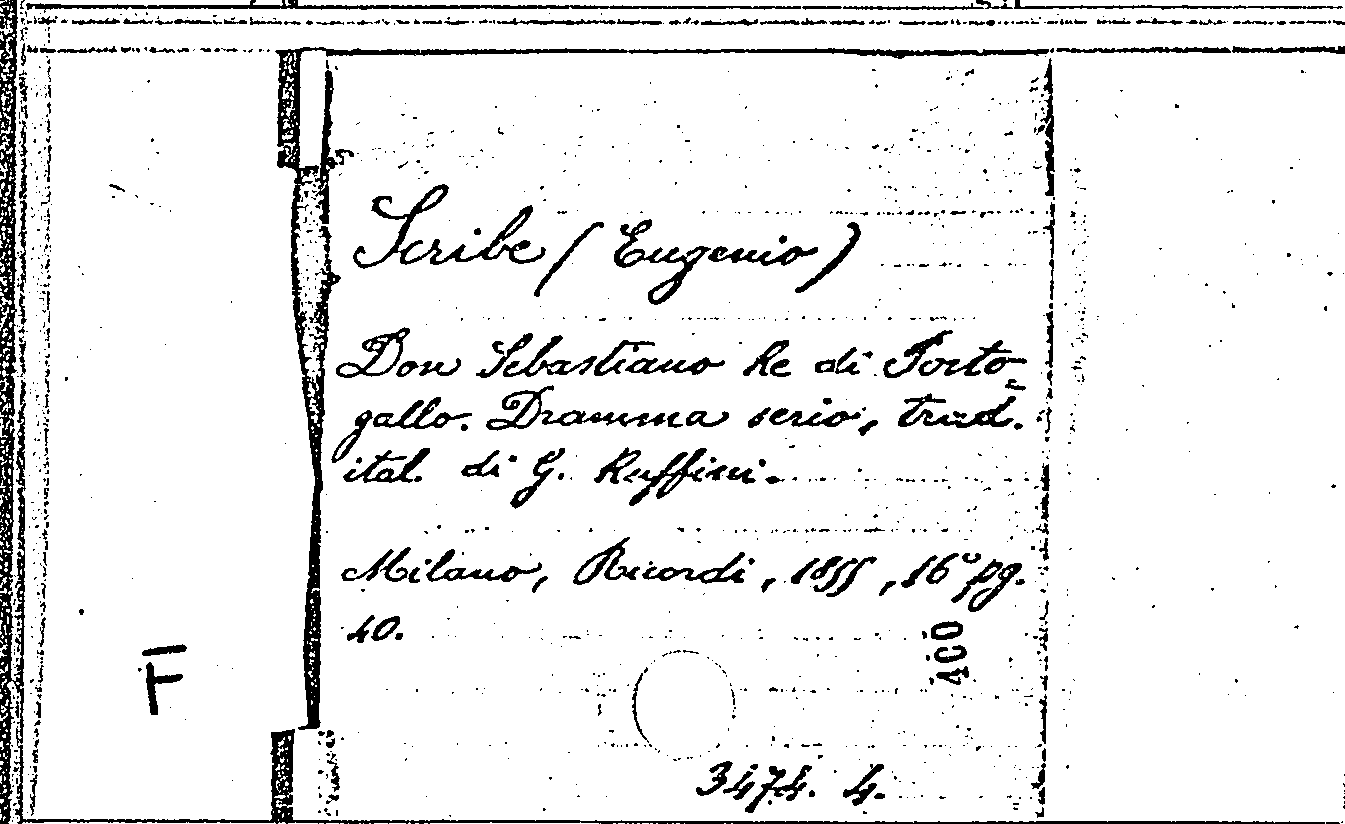 Scribe (Eugenio)
Don Sebastiano Re di Porto=
gallo. Dramma serio, trad.
ital. di G. Ruffini.
Milano, Ricordi, 1855, 16° pg.
40.
400
F
3474. 4.